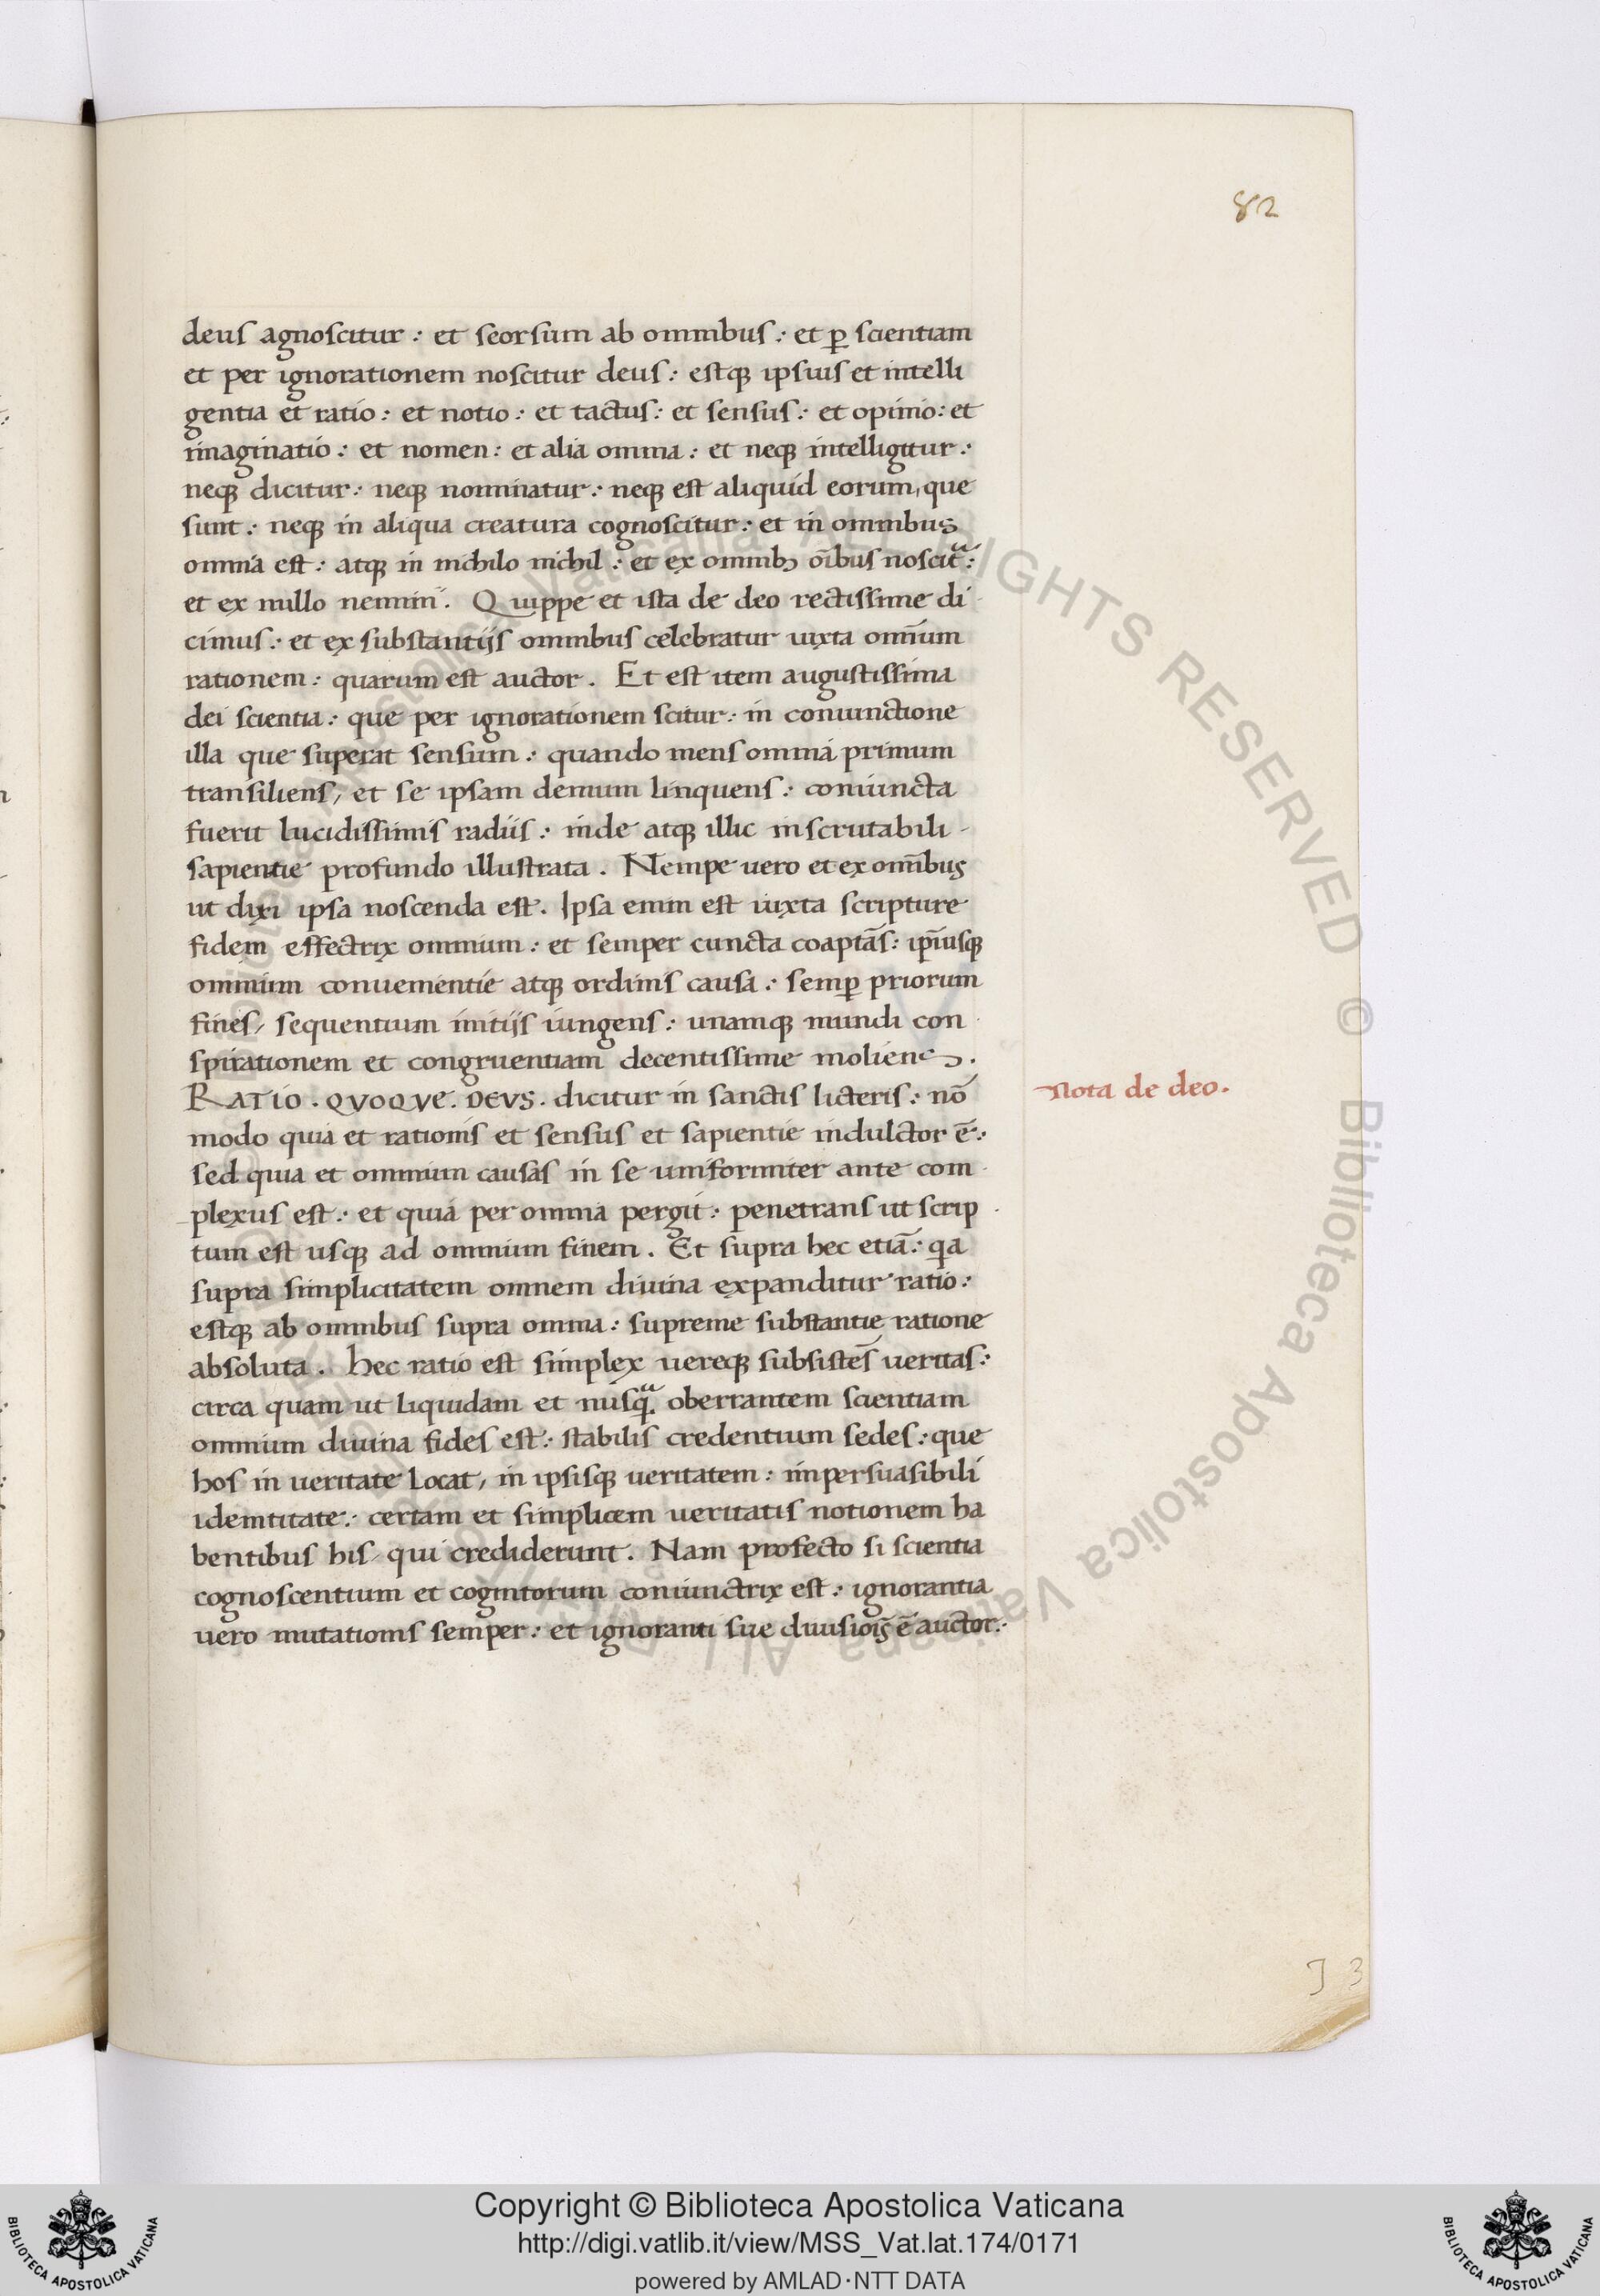 82
deus agnoscitur : et seorsum ab omnibus : et ꝑ scientiam
et per ignorationem noscitur deus : estqꝫ ipsius et intelli
gentia et ratio : et notio : et tactus : et sensus : et opinio : et
imaginatio : et nomen : et alia omnia : et neqꝫ intelligitur :
neqꝫ dicitur : neqꝫ nominatur : neqꝫ est aliquid eorum, que
sunt : neqꝫ in aliqua creatura cognoscitur : et in omnibus
omnia est : atqꝫ in nichilo nichil : et ex omnibꝫ oībus noscitᷓ :
et ex nullo nemini . Quippe et ista de deo rectissime di
cimus : et ex substantijs omnibus celebratur iuxta omīum
rationem : quarum est auctor . Et est item augustissima
dei scientia : que per ignorationem scitur : in coniunctione
illa que superat sensum : quando mens omnia primum
transiliens, et se ipsam demum linquens : coniuncta
fuerit lucidissimis radiis : inde atqꝫ illic inscrutabili -
sapientie profundo illustrata . Nempe uero et ex omībus
ut dixi ipsa noscenda est . Ipsa enim est iuxta scripture
fidem effectrix omnium : et semper cuncta coaptās : ip̄iusqꝫ
omnium conuenientie atqꝫ ordinis causa : semꝑ priorum
fines, sequentium initijs iungens : unamqꝫ mundi con
spirationem et congruentiam decentissime moliens .
RATIO . QVOQVE . DEVS . dicitur in sanctis licteris : nō
modo quia et rationis et sensus et sapientie indultor ē :
sed quia et omnium causas in se uniformiter ante com
plexus est : et quia per omnia pergit : penetrans ut scrip
tum est usqꝫ ad omnium finem . Et supra hec etiā : qia
supra simplicitatem omnem diuina expanditur ratio :
estqꝫ ab omnibus supra omnia : supreme substantie ratione
absoluta . Hec ratio est simplex uereqꝫ subsistēs ueritas :
circa quam ut liquidam et nusqᷓ oberrantem scientiam
omnium diuina fides est : stabilis credentium sedes : que
hos in ueritate locat, in ipsisqꝫ ueritatem : impersuasibili
idemtitate : certam et simplicem ueritatis notionem ha
bentibus his, qui crediderunt . Nam profecto si scientia
cognoscentium et cognitorum coniunctrix est : ignorantia
uero mutationis semper : et ignoranti sue diuisiois̄ ē auctor :
Nota de deo .
Copyright © Biblioteca Apostolica Vaticana
http://digi.vatlib.it/view/MSS_Vat.lat.174/0171
powered by AMLAD·NTT DATA
BIBLIOTECA APOSTOLICA VATICANA
BIBLIOTECA APOSTOLICA VATICANA